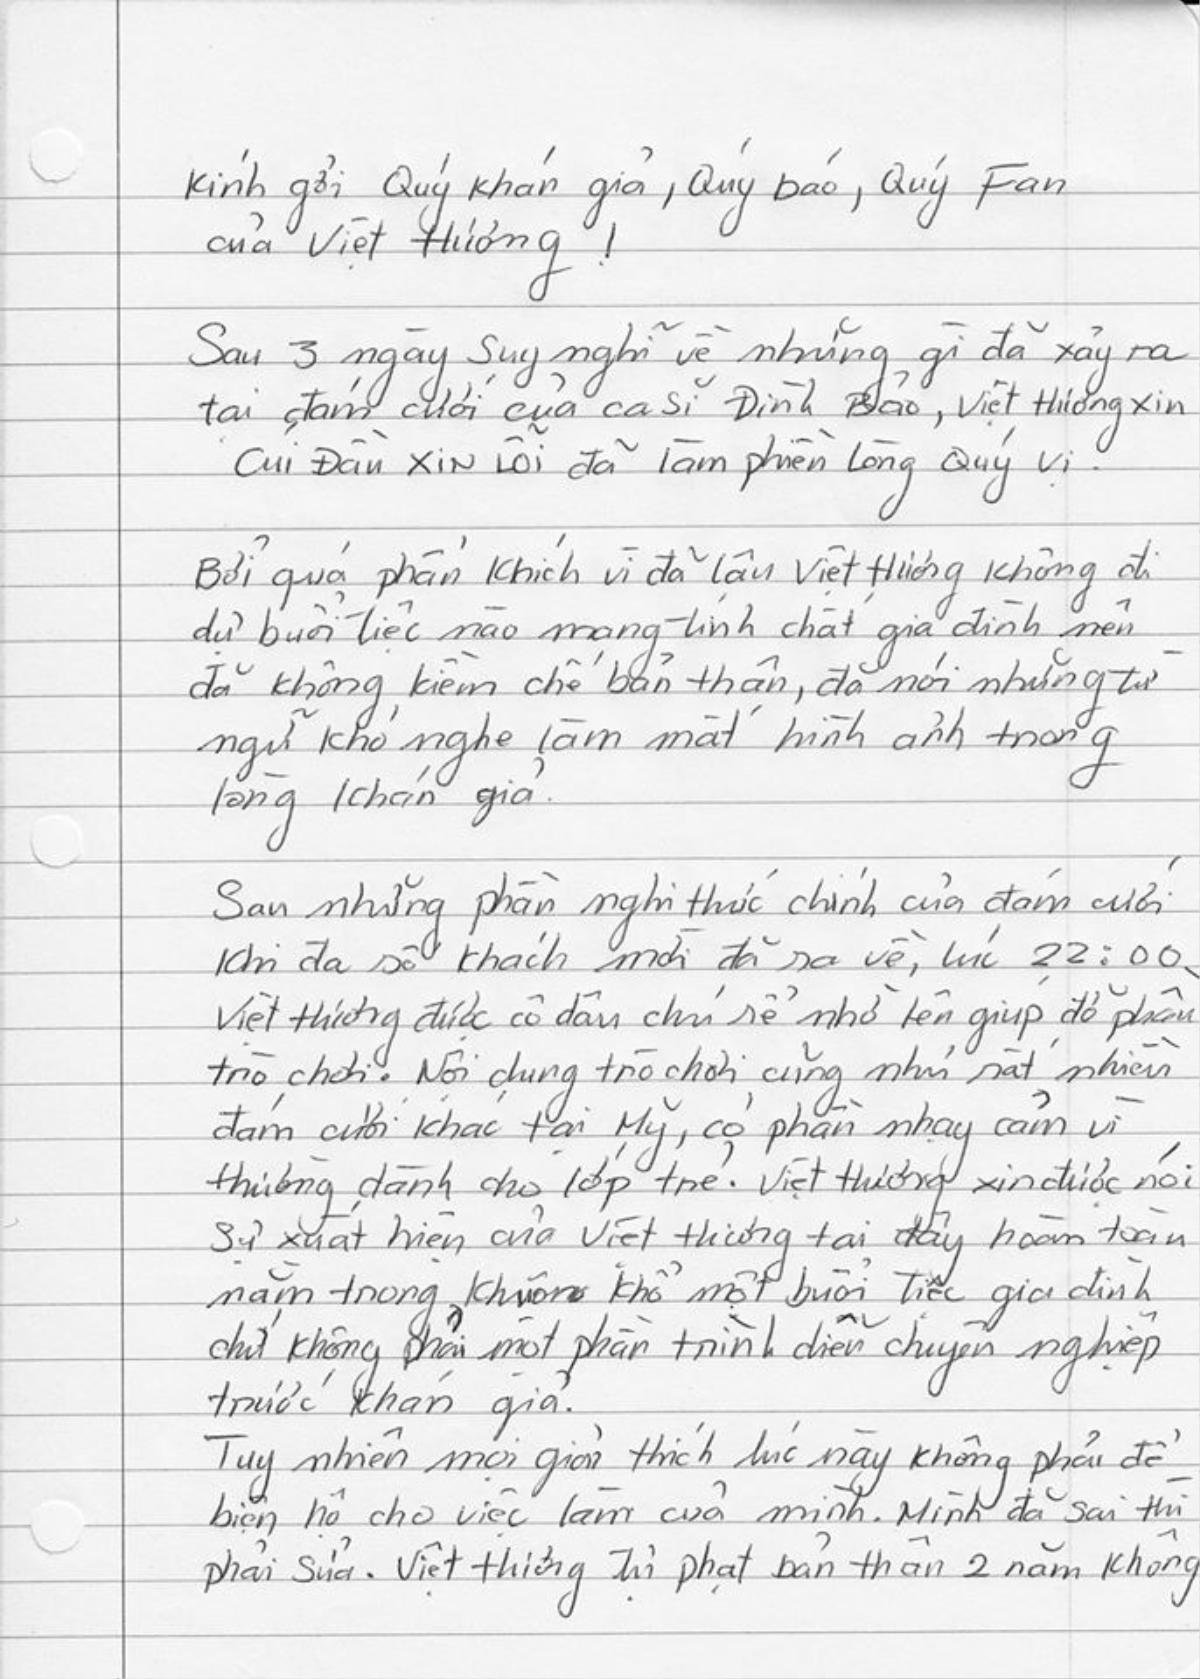 Kính gởi Quý khán giả, Quý báo, Quý Fan
của Việt Hương !
Sau 3 ngày Suy nghĩ về những gì đã xảy ra
tại đám cưới của ca Sĩ Đinh Bảo, Việt Hương xin
CÚI ĐẦU XIN LỖI đã làm phiền lòng Quý vị.
Bởi quá phấn khích vì đã lâu Việt Hương không đi
dự buổi tiệc nào mang tính chất gia đình nên
đã không kiềm chế bản thân, đã nói những từ
ngữ khó nghe làm mất hình ảnh trong
lòng khán giả.
Sau những phần nghi thức chính của đám cưới
khi đa số khách mời đã ra về, lúc 22:00,
Việt Hương được cô dâu chú rể nhờ lên giúp đỡ phần
trò chơi. Nội dung trò chơi cũng như rất nhiều
đám cưới khác tại Mỹ, có phần nhạy cảm vì
thường dành cho lớp trẻ. Việt Hương xin được nói
Sự xuất hiện của Việt Hương tại đây hoàn toàn
nằm trong khuôn khổ một buổi Tiệc gia đình
chứ không phải một phần trình diễn chuyên nghiệp
trước khán giả.
Tuy nhiên mọi giải thích lúc này không phải để
biện hộ cho việc làm của mình. Mình đã sai thì
phải Sửa. Việt Hương Tự phạt bản thân 2 năm không